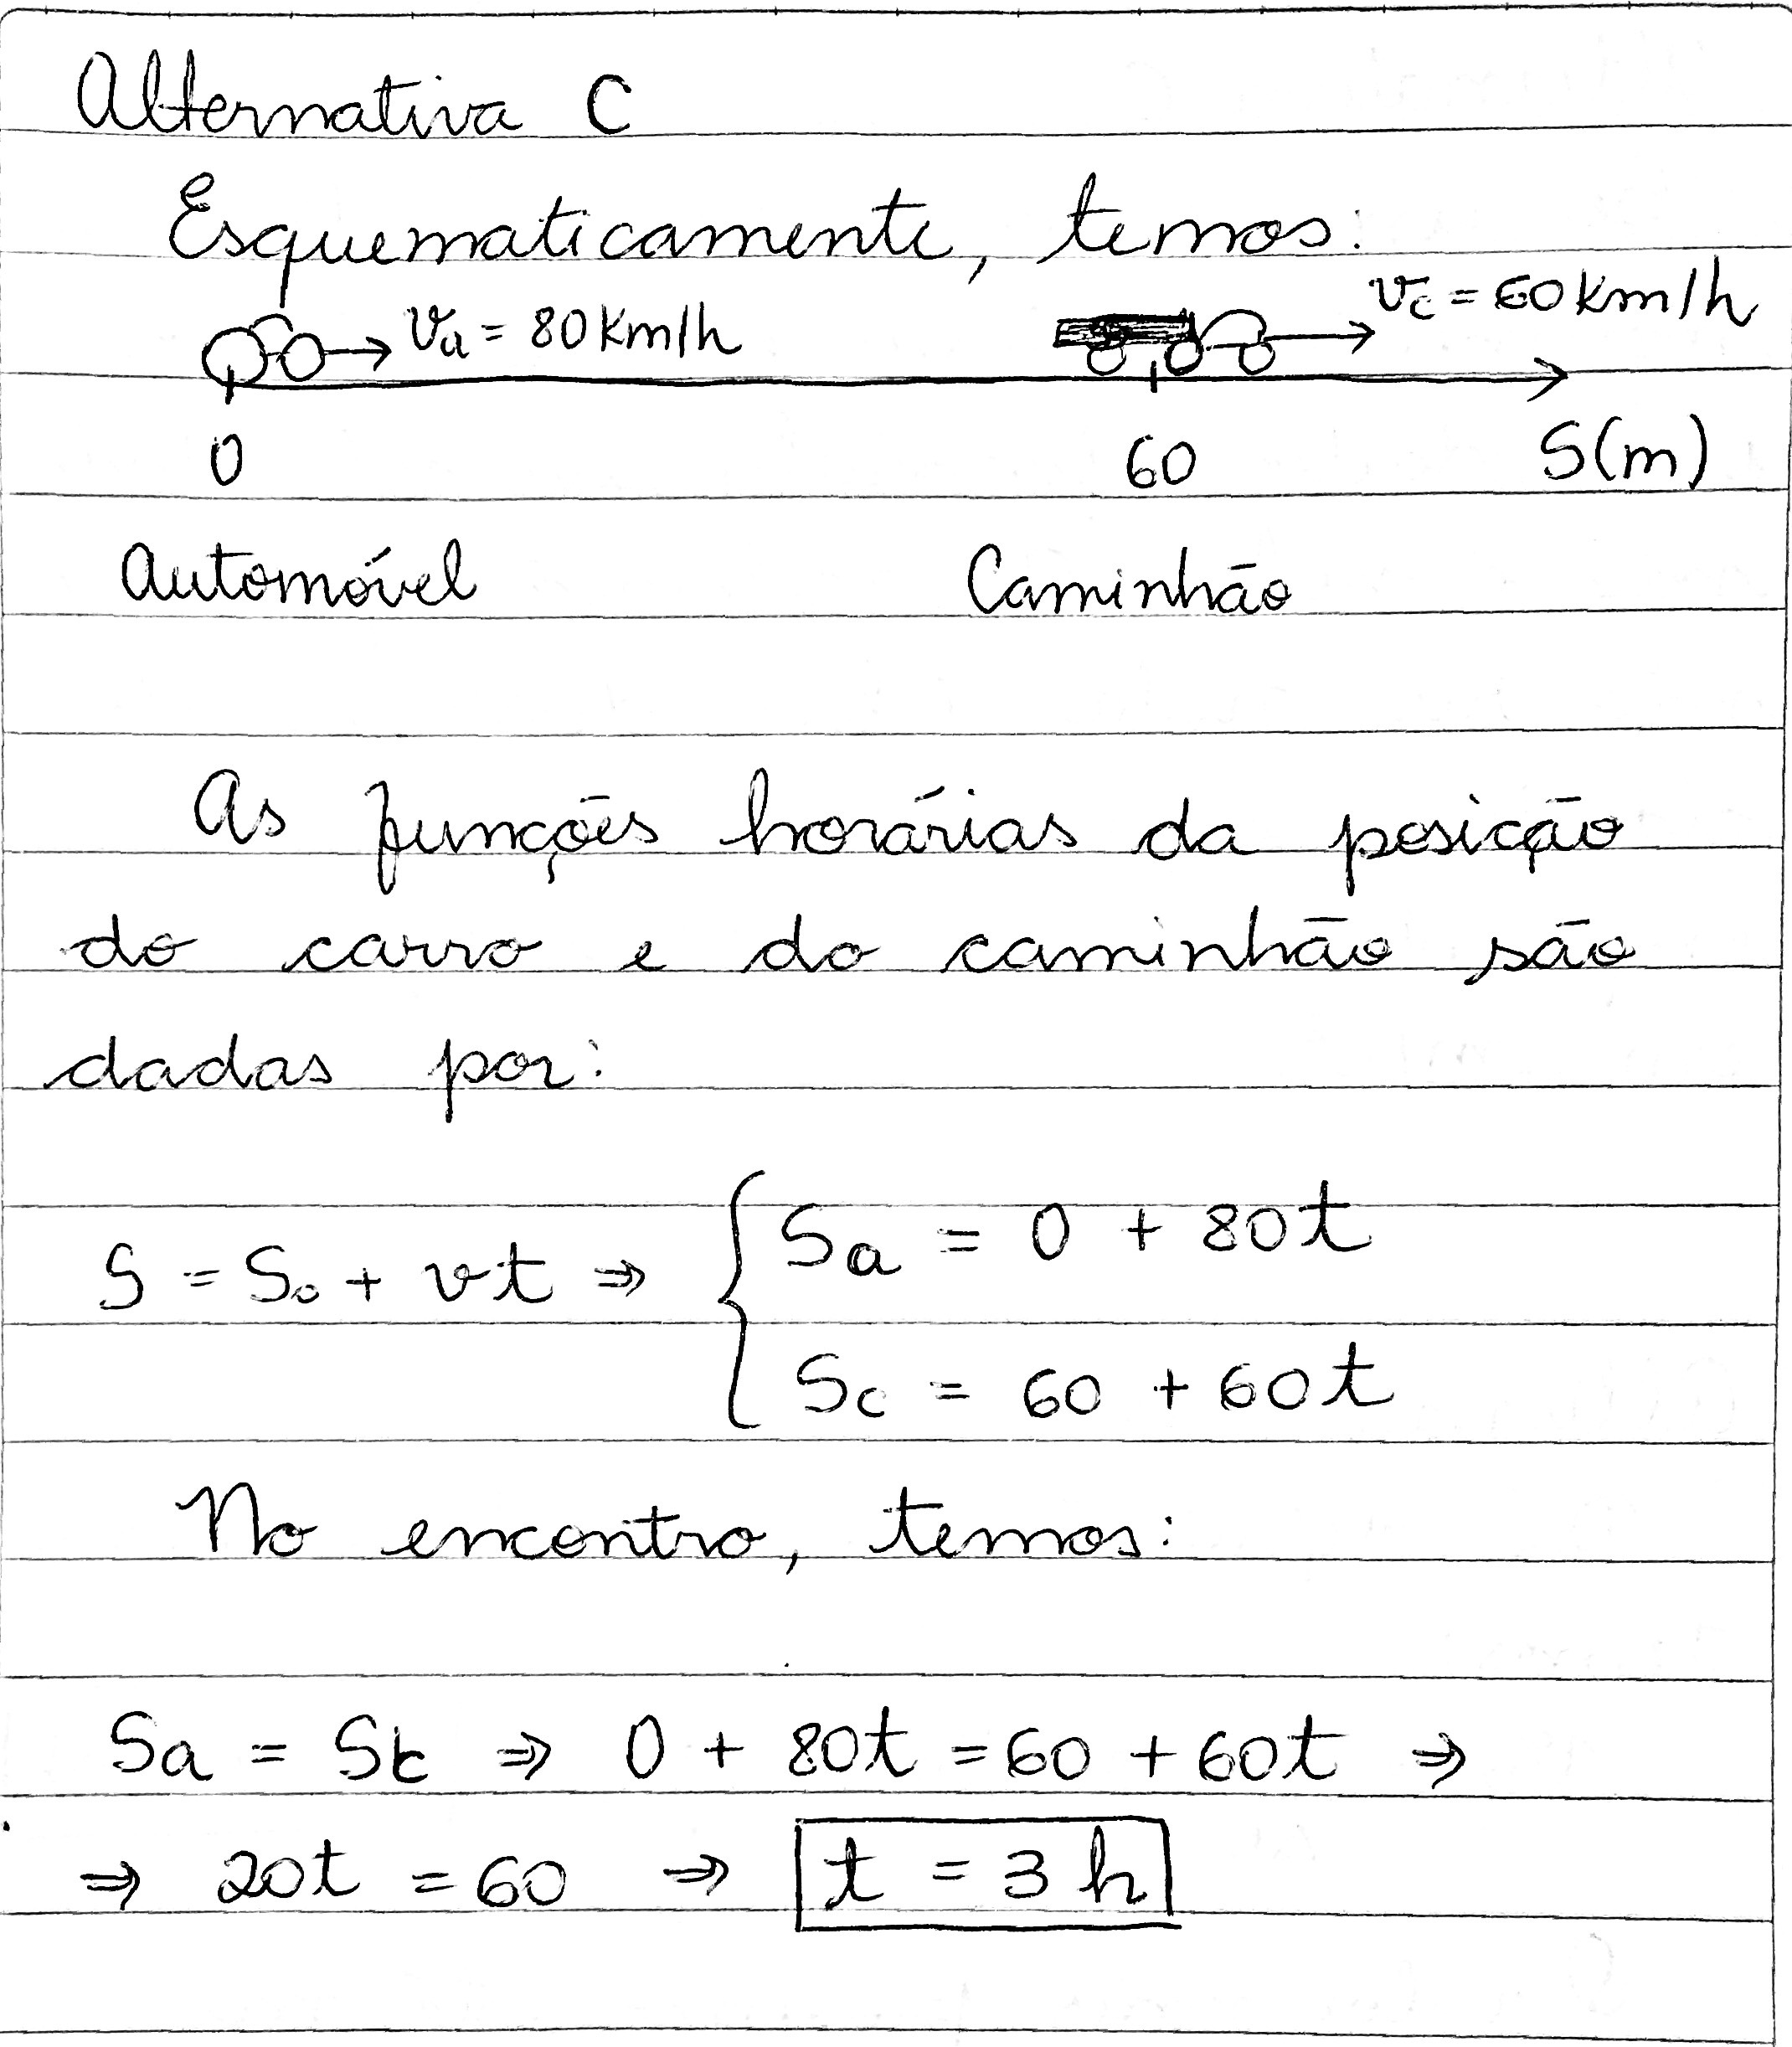 Alternativa C
Esquematicamente, temos:
va = 80 Km/h vc = 60 Km/h
0 60 S(m)
Automóvel Caminhão
As funções horárias da posição
do carro e do caminhão são
dadas por:
S = S₀ + vt ⇒ { Sa = 0 + 80t
Sc = 60 + 60t
No encontro, temos:
Sa = Sc ⇒ 0 + 80t = 60 + 60t ⇒
⇒ 20t = 60 ⇒ t = 3 h